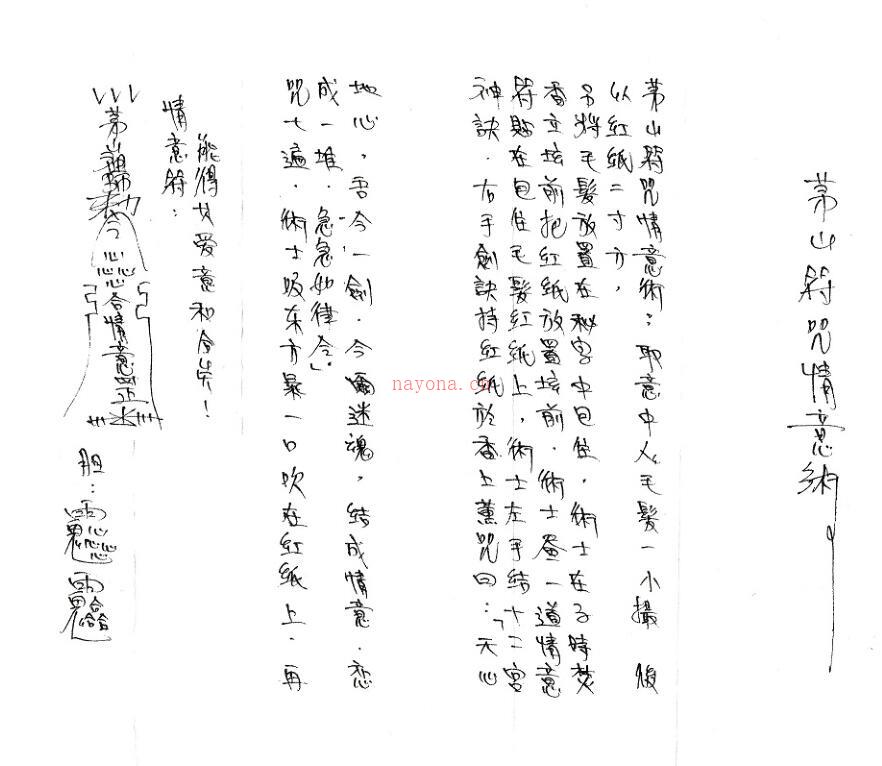 茅山符咒情意術
茅山符咒情意術：取意中人毛髮一小撮 後
以紅紙二寸方，
另將毛髮放置在秘字中包住，術士在子時焚
香立壇前把紅紙放置壇前．術士畫一道情意
符貼在包住毛髮紅紙上，術士左手結十二宮
神訣．右手劍訣持紅紙於香上薰咒曰：「天心
地心，吾今一劍．令爾迷魂，结成情意．恋
成一堆．急急如律令」
咒七遍．術士吸东方炁一口吹在紅紙上．再
能得女愛意和合矣！
情意符：
茅山
勅令
心心心
合情意
胆：